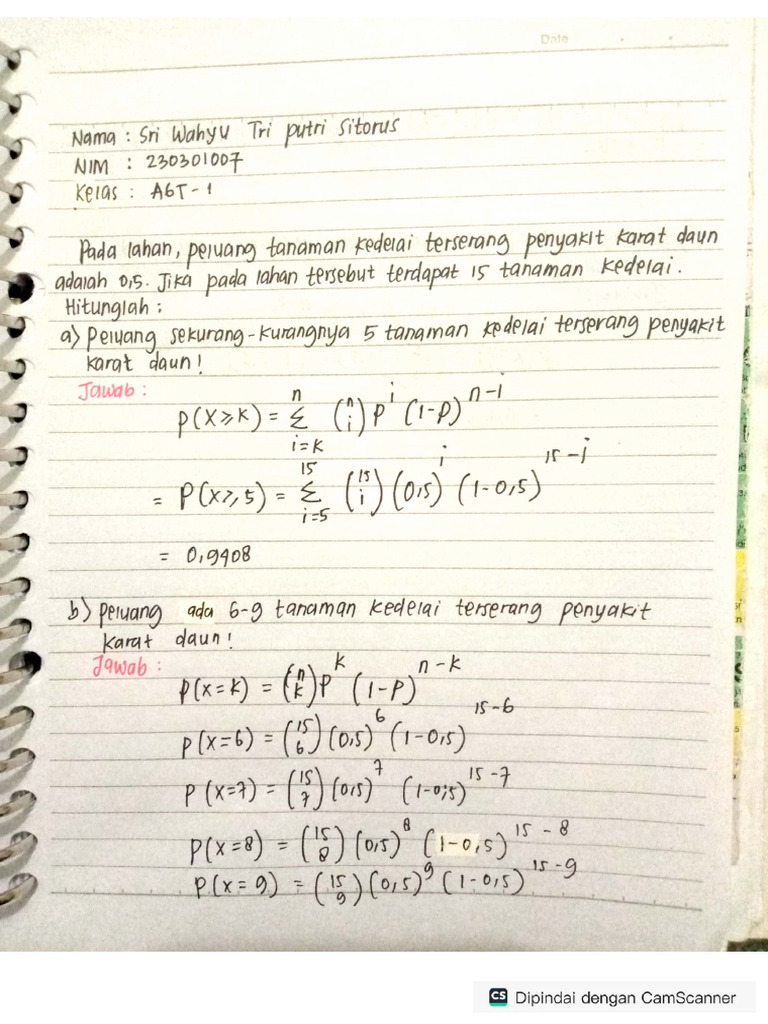 Date
Nama : Sri Wahyu Tri putri Sitorus
NIM : 230301007
Kelas : AGT - 1
Pada lahan, peluang tanaman kedelai terserang penyakit karat daun
adalah 0,5. Jika pada lahan tersebut terdapat 15 tanaman kedelai.
Hitunglah :
a) Peluang sekurang-kurangnya 5 tanaman kedelai terserang penyakit
karat daun!
Jawab :
P(X≥K) = n Σ i=K (n i) p^i (1-p)^n-i
= P(X≥5) = 15 Σ i=5 (15 i) (0,5)^i (1-0,5)^15-i
= 0,9408
b) Peluang ada 6-9 tanaman kedelai terserang penyakit
karat daun!
Jawab :
P(x=k) = (n k) p^k (1-p)^n-k
P(x=6) = (15 6) (0,5)^6 (1-0,5)^15-6
P(x=7) = (15 7) (0,5)^7 (1-0,5)^15-7
P(x=8) = (15 8) (0,5)^8 (1-0,5)^15-8
P(x=9) = (15 9) (0,5)^9 (1-0,5)^15-9
CS Dipindai dengan CamScanner